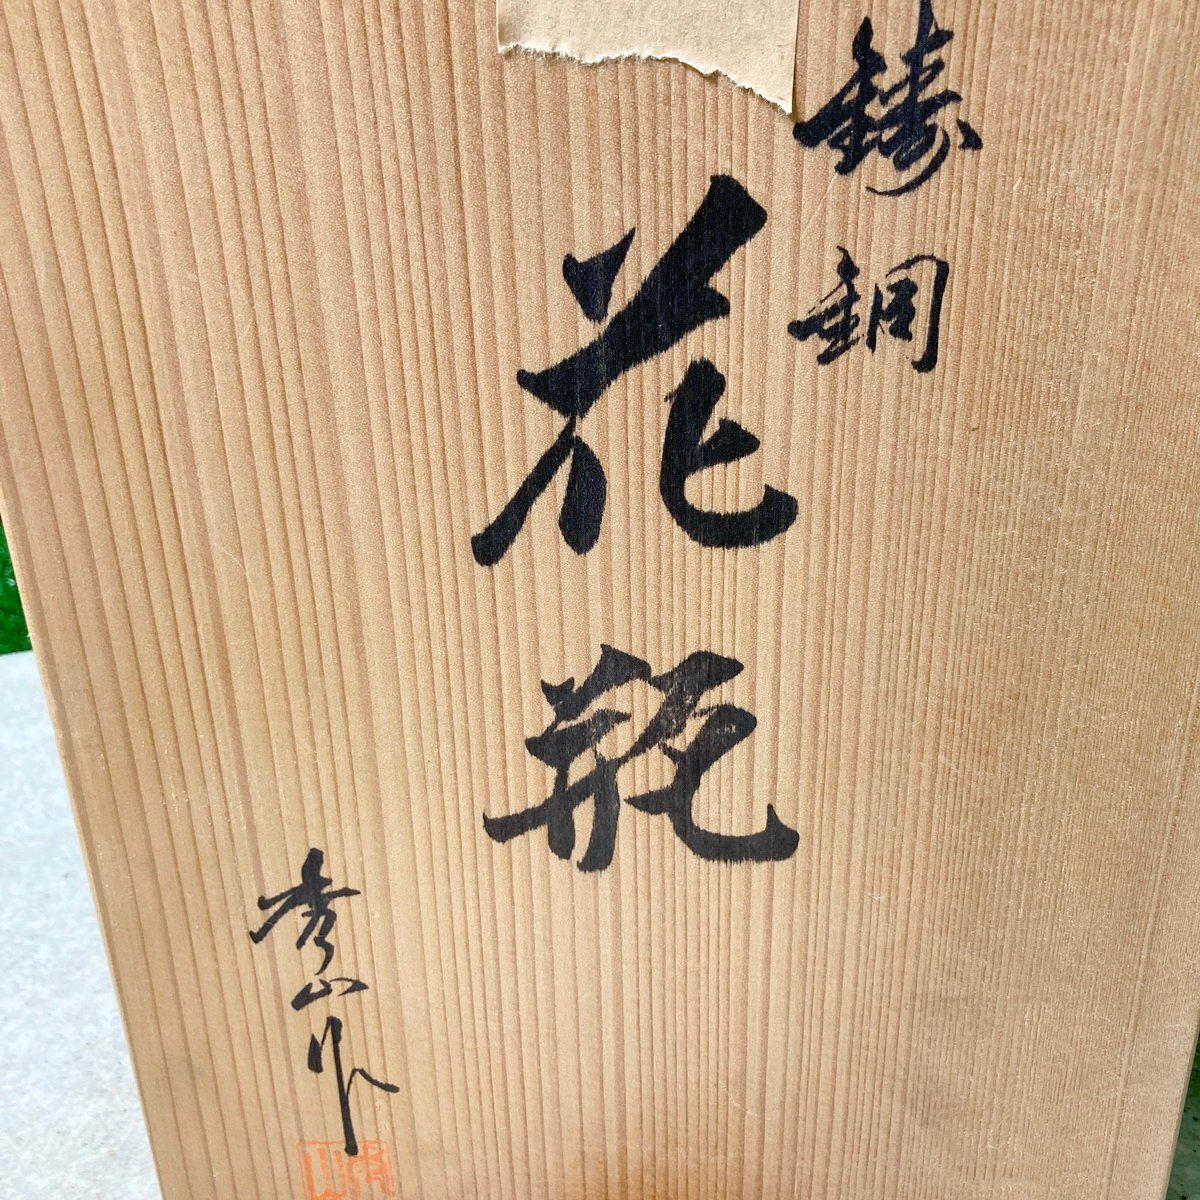 鋳銅
花瓶
秀山作